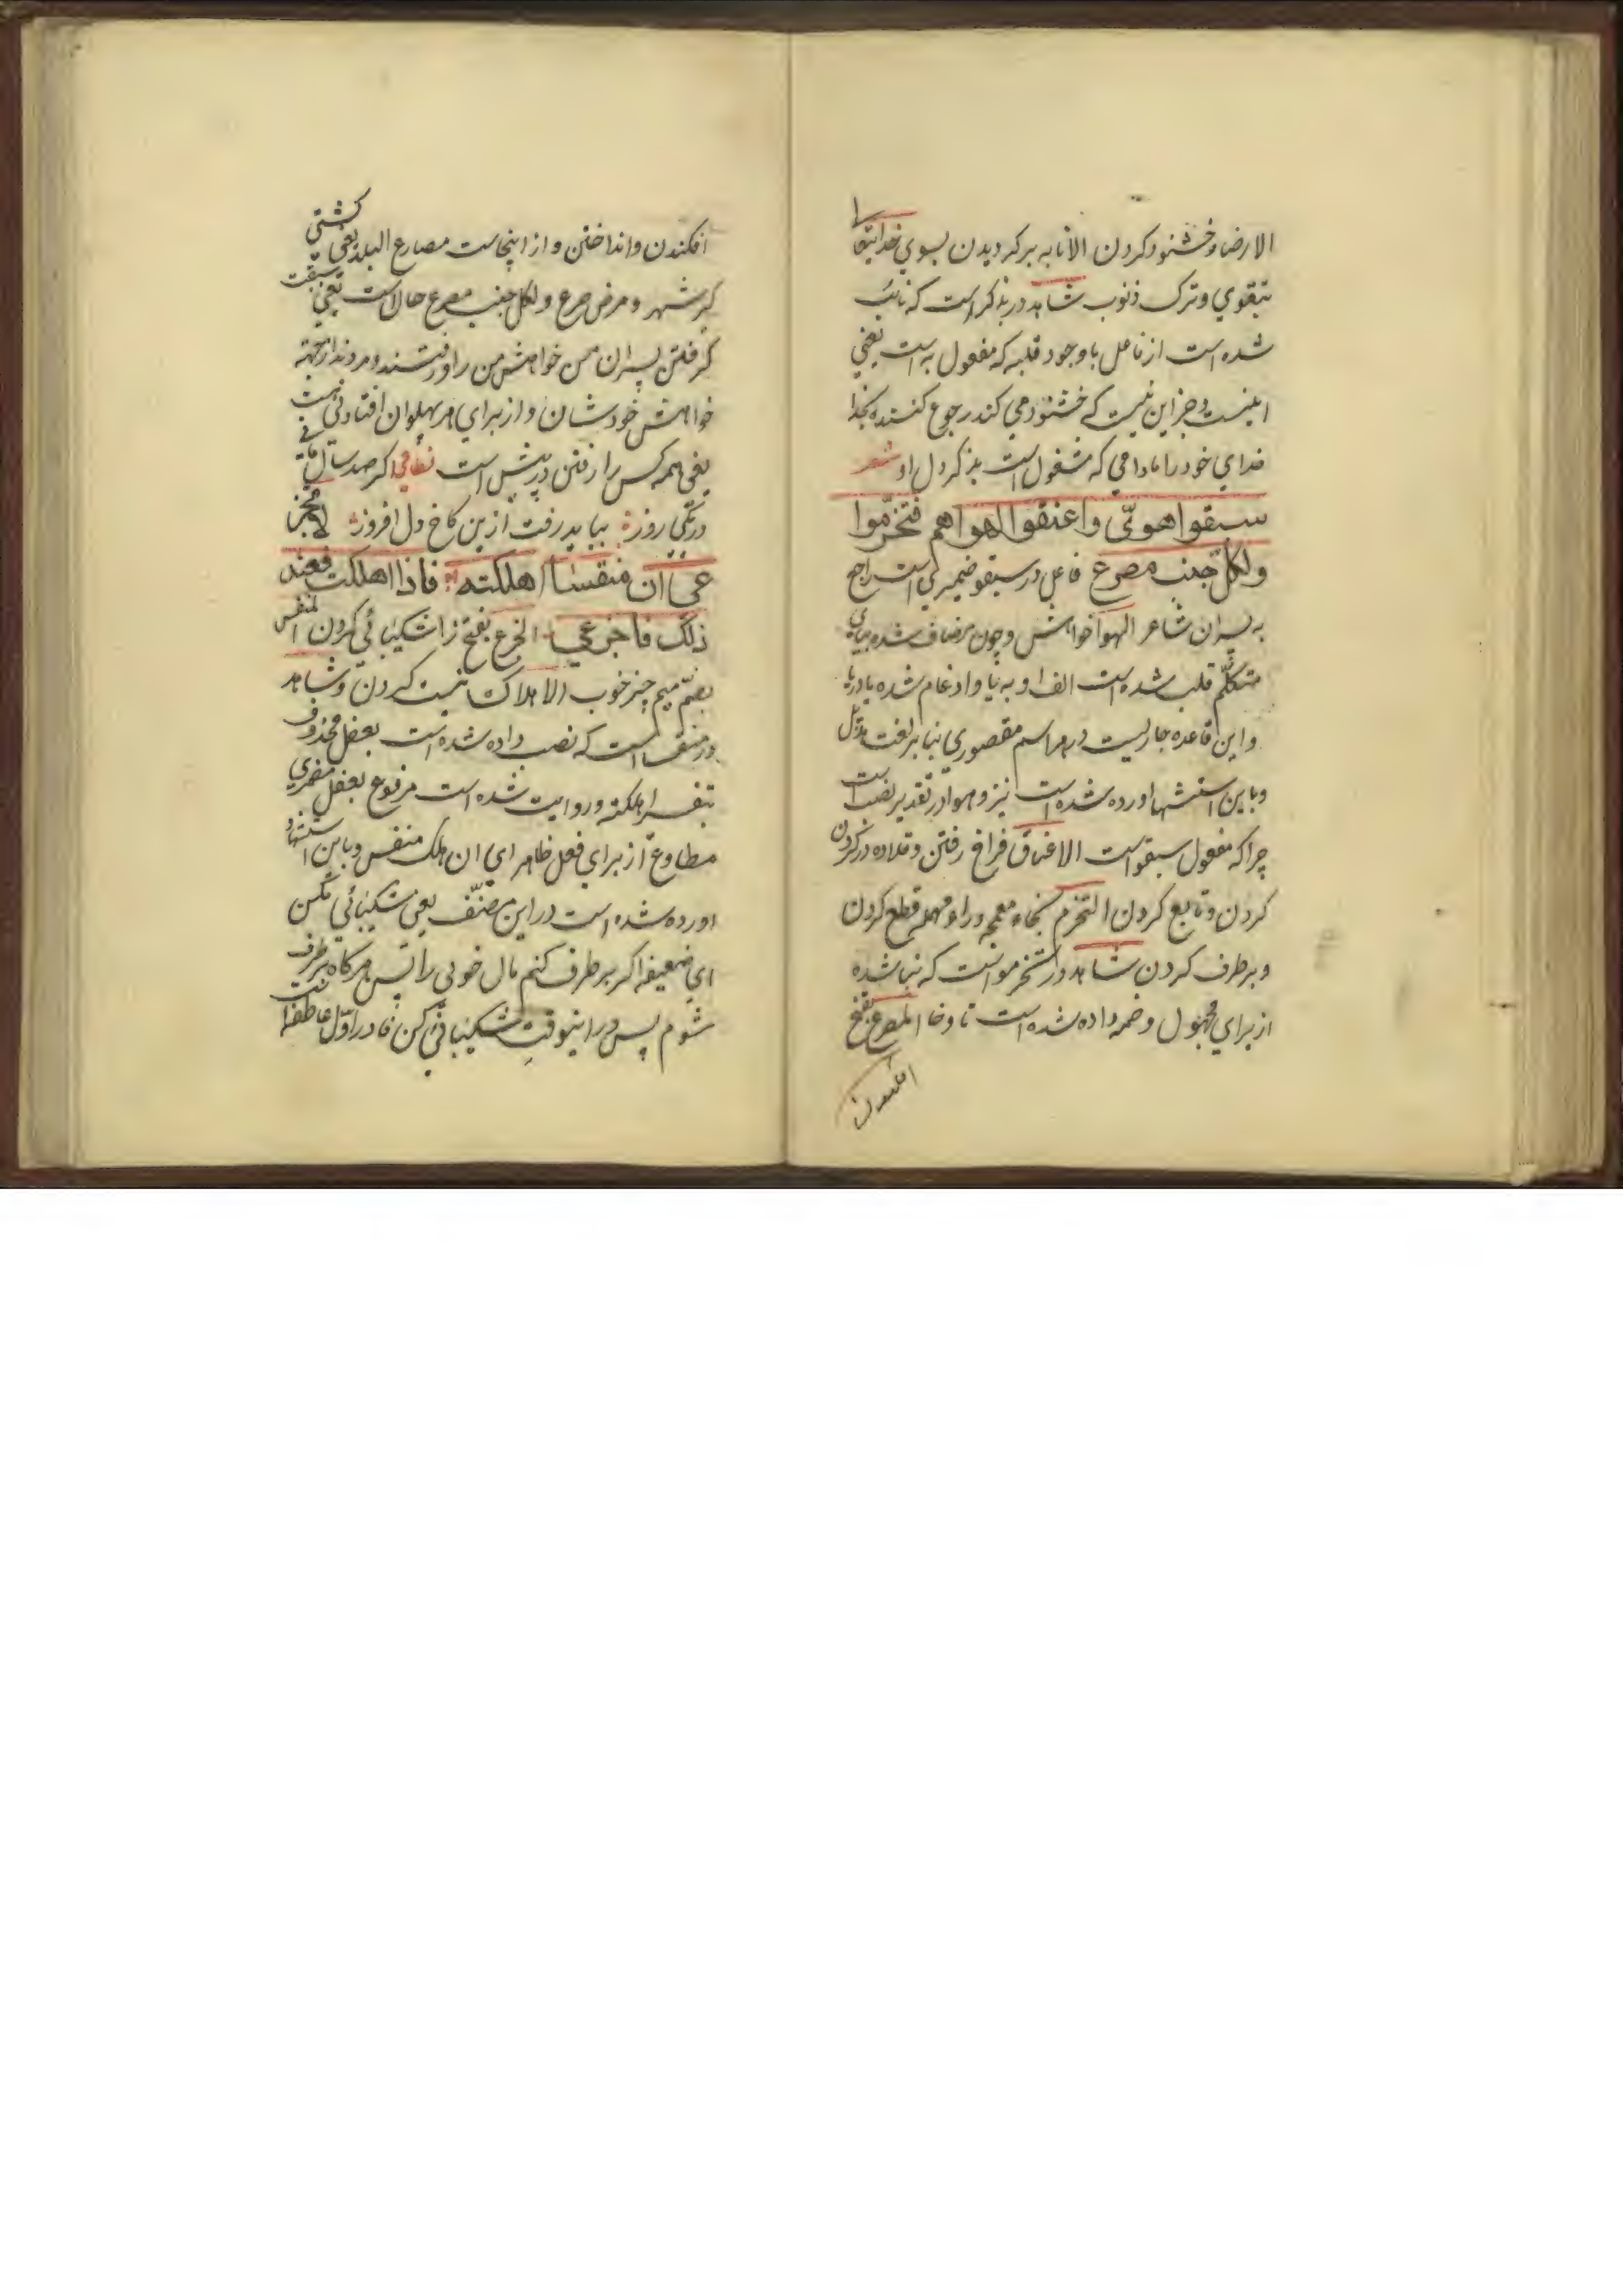 الارضا خشنود کردن الانابه برگردیدن بسوی خدایتعا
بتقوی وترک ذنوب شاهد در بذکر است که نائب
شده است از فاعل باوجود قلبه که مفعول به است یعنی
اینست وجز این نیست که خشنود می کند رجوع کننده بخدا
خدای خود را مادامی که مشغول است بذکر دل او شعر
سبقوا هويّ واعنقوا لهواهم فتخرّموا
ولكلّ جنب مصرع فاعل در سبقو ضمیری است راجع
به پسران شاعر الهوا خواهش وچون مضاف شده بیای
متکلّم قلب شده است الف او به یا وادغام شده یا در یا
واین قاعده جاریست در هر اسم مقصوری بنا بر لغت هذیل
وباین استشهاد اورده شده است نیز وهوا در تقدیر نصب است
چرا که مفعول سبقو است الاعناق فراخ رفتن وقلاده در گردن
کردن وتابع کردن التخرم بخاء معجمه وراء مهمله قطع کردن
وبرطرف کردن شاهد در تخرموا است که بنا شده
از برای مجهول وضمه داده شده است تا وخا المصرع بفتح
افکندن وانداختن واز اینجاست مصارع البلد یعنی کشتی
گیر شهر ومرض صرع ولکل جنب مصرع حال است یعنی سبقت
گرفتن پسران من خواهش من را ورفتند ومردند از جهة
خواهش خودشان واز برای هر پهلوان افتادنی هست
یعنی همه کس را رفتن در پیش است نظامی اگر صد سال مانی
در یکی روز بباید رفت ازین کاخ دل افروز لا تجز
عي ان منفسا اهلكته فاذا اهلكت فعند
ذلك فاجزعي الجزع بفتح زا شکیبائی کردن المنفس
بضمّ میم چیز خوب الاهلاک نیست کردن وشاهد
در منفسا است که نصب داده شده است بفعل محذوف
اهلکته وروایت شده است مرفوع بفعل مضمری
مطاوع از برای فعل ظاهر ای ان هلک منفس وباین استشهاد
اورده شده است در این مصنّف یعنی شکیبائی مکن
ای ضعیفه اگر برطرف کنم مال خوبی را پس هرگاه برطرف
شوم پس در اینوقت شکیبائی کن فا در اوّل عاطفه است